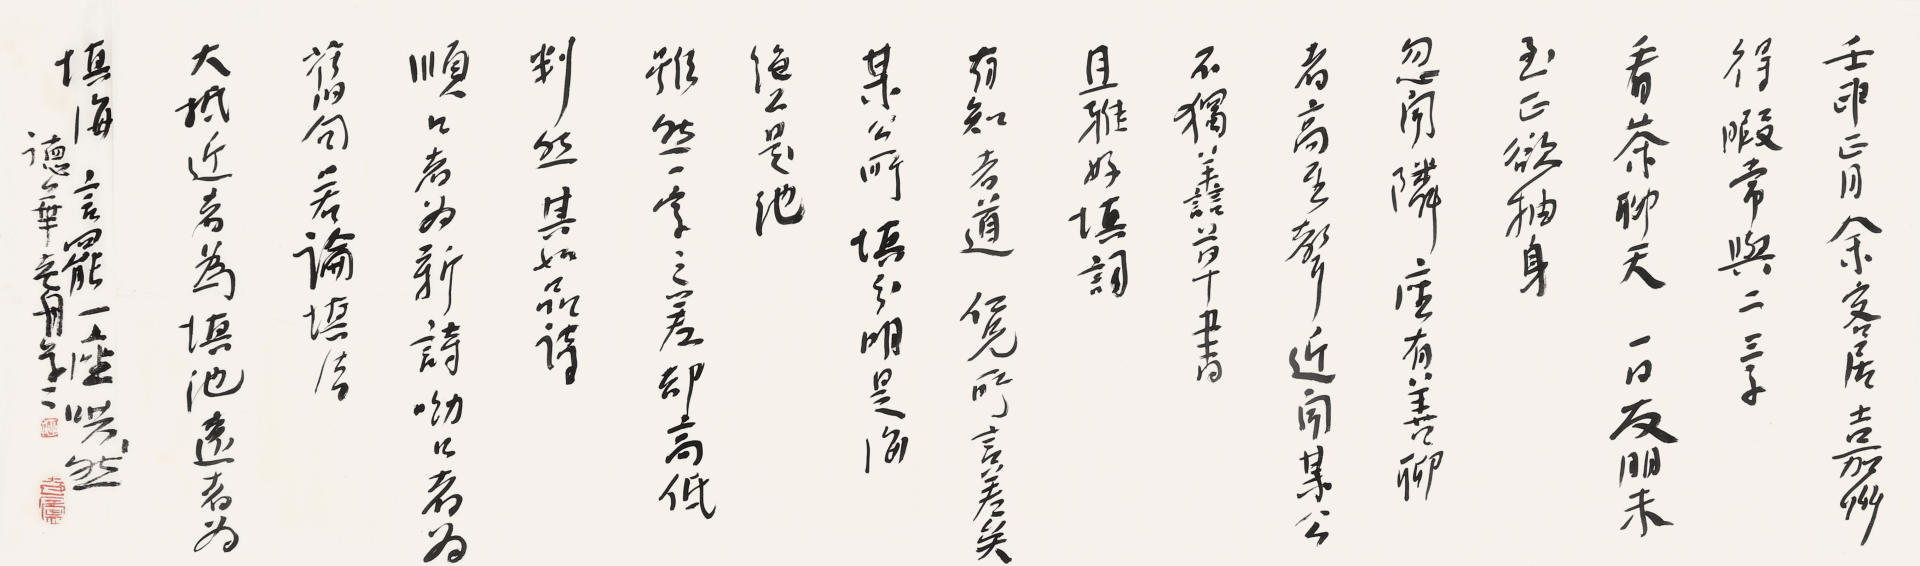 壬申正月余客居嘉州
得暇常與二三子
看茶聊天一日友朋未
至正欲抽身
忽聞隣座有善聊
者高至聲近聞某公
不獨善諳草書
且雅好填詞
有知者道儻所言差矣
某公所填分明是海
絕不是池
雖然一字之差却高低
判然其如品詩
順口者為新詩拗口者為
舊句若論填法
大抵近者為填池遠者為
填海言罷一座哄然
德華